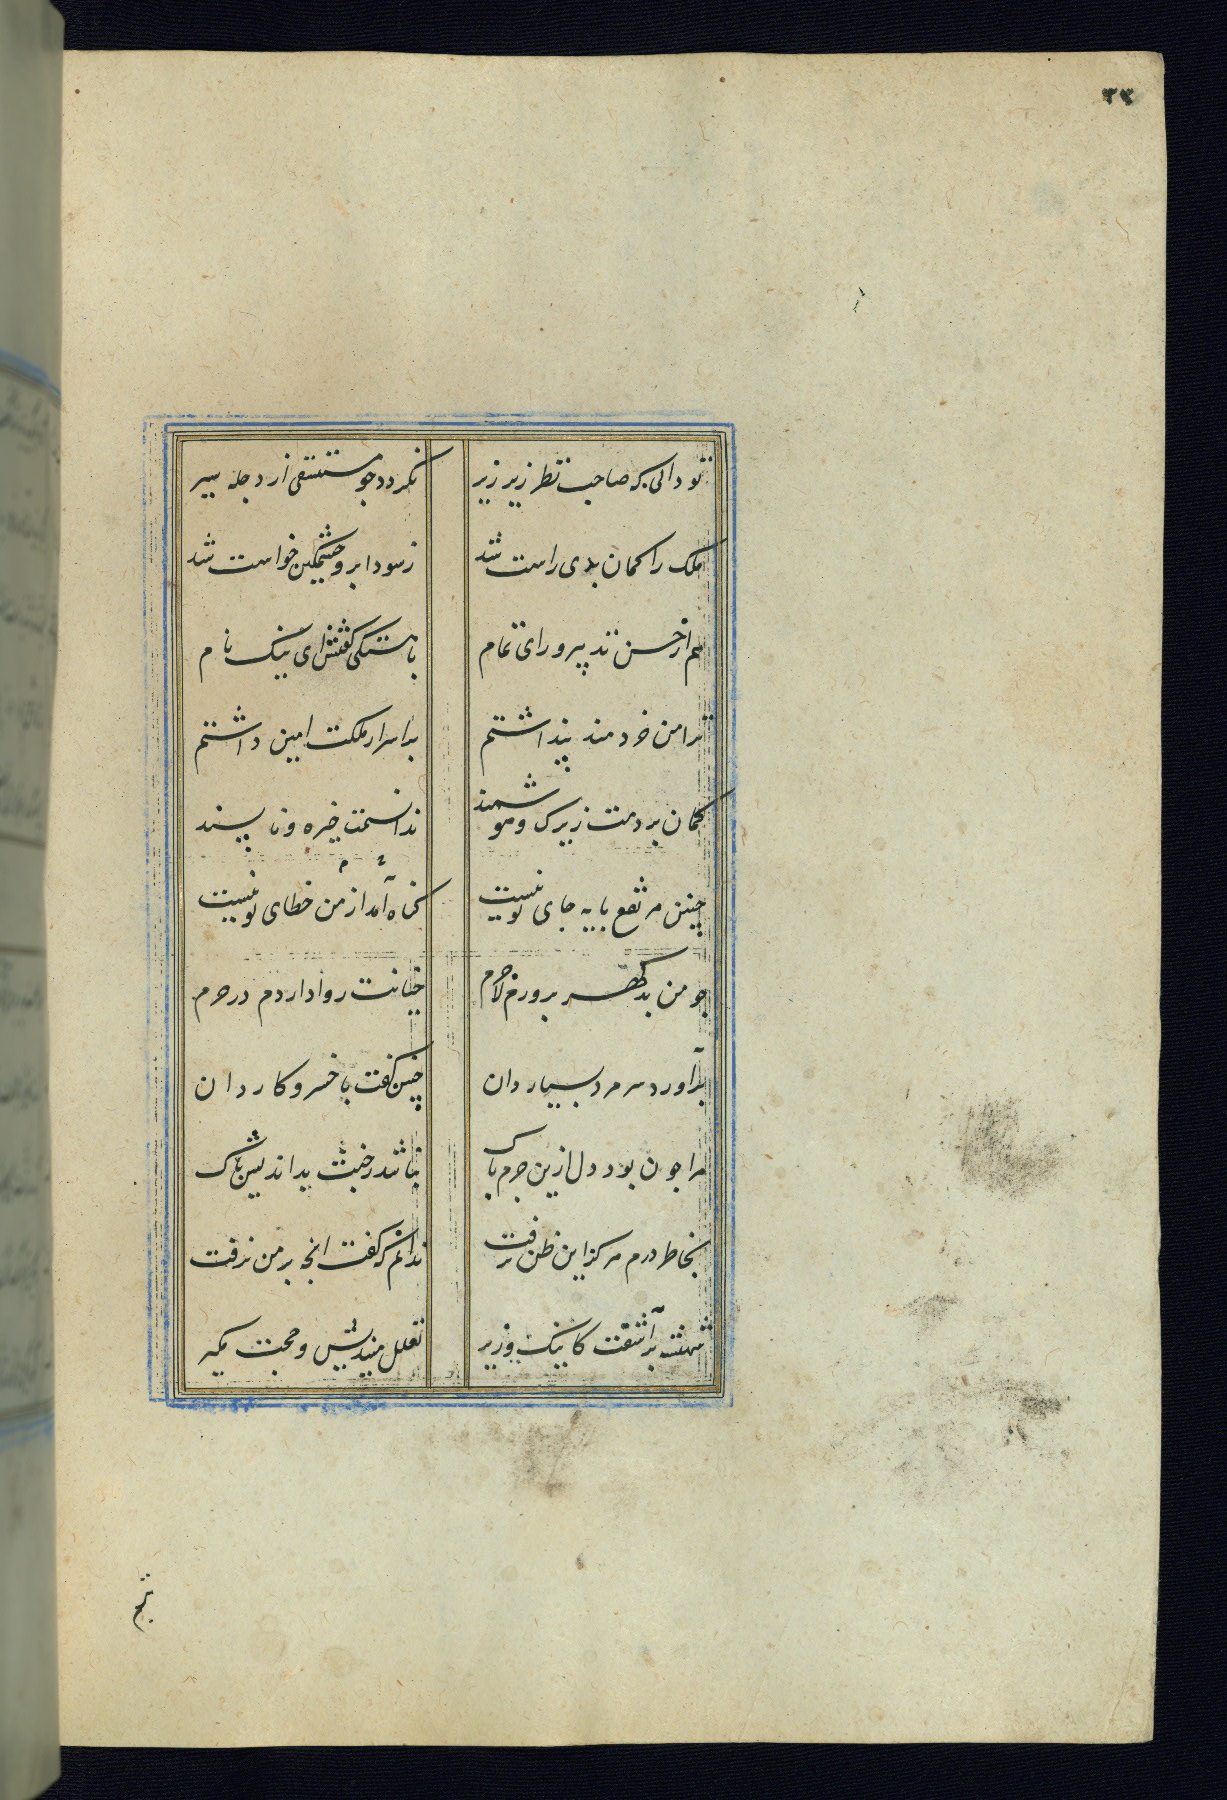 ۳۳
تو دانی که صاحب نظر زیر زیر نکردد چو مستسقی از دجله سیر
ملک را کمان بدی راست شد ز سودا برو خشمکین خواست شد
هم از حسن تدبیر و رای تمام باهستکی کفتش ای نیک نام
ترا من خردمند پنداشتم بر اسرار ملکت امین داشتم
کمان بردمت زیرک و هوشمند ندانستمت خیره و ناپسند
چنین مرتفع پایه جای تو نیست کناه آمد از من خطای تو نیست
چو من بدکهر پرورم لاجرم خیانت روا داردم در حرم
برآورد سر مرد بسیار دان چنین کفت با خسرو کاردان
مرا چون بود دل ازین جرم پاک نباشد ز خبث بداندیش باک
بخاطر درم هرکز این ظن نرفت ندانم که کفت انچه بر من نرفت
شهنشه برآشفت کاینک وزیر تعلل میندیش و حجت مکیر